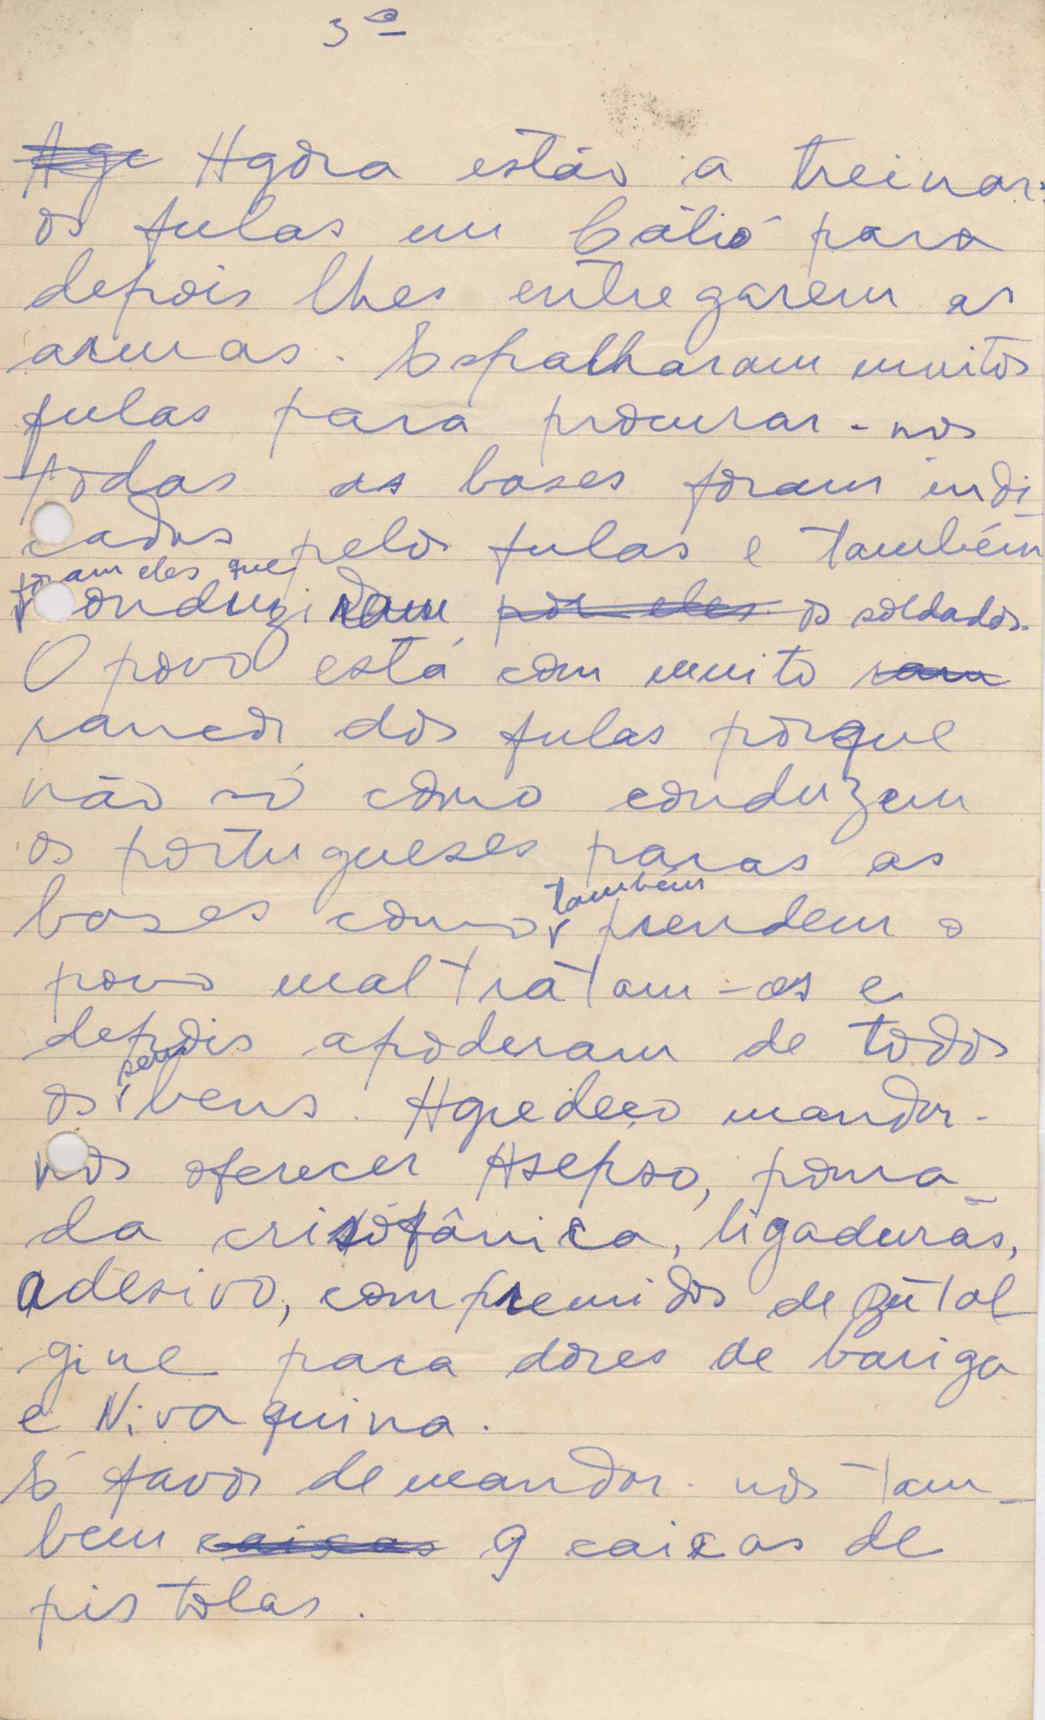 3º
Age Agora estão a treinar
os fulas em Cátió para
depois lhes entregarem as
armas. Espalharam muitos
fulas para procurar-nos
todas as bases foram indi
cadas pelos fulas e também
foram eles que
conduziram por eles os soldados.
O povo está com muito ram
rancor dos fulas porque
não só como conduzem
os portugueses paras as
também
bases como prendem o
povo maltratam-os e
depois apoderam de todos
seus
os bens. Agredeço mandar-
nos oferecer Asepso, poma_
da crisofânica, ligaduras,
adesivo, compremidos de
gine para dores de bariga
e Nivaquina.
É favor de mandar-nos tam_
bem caixas 9 caixas de
pistolas.